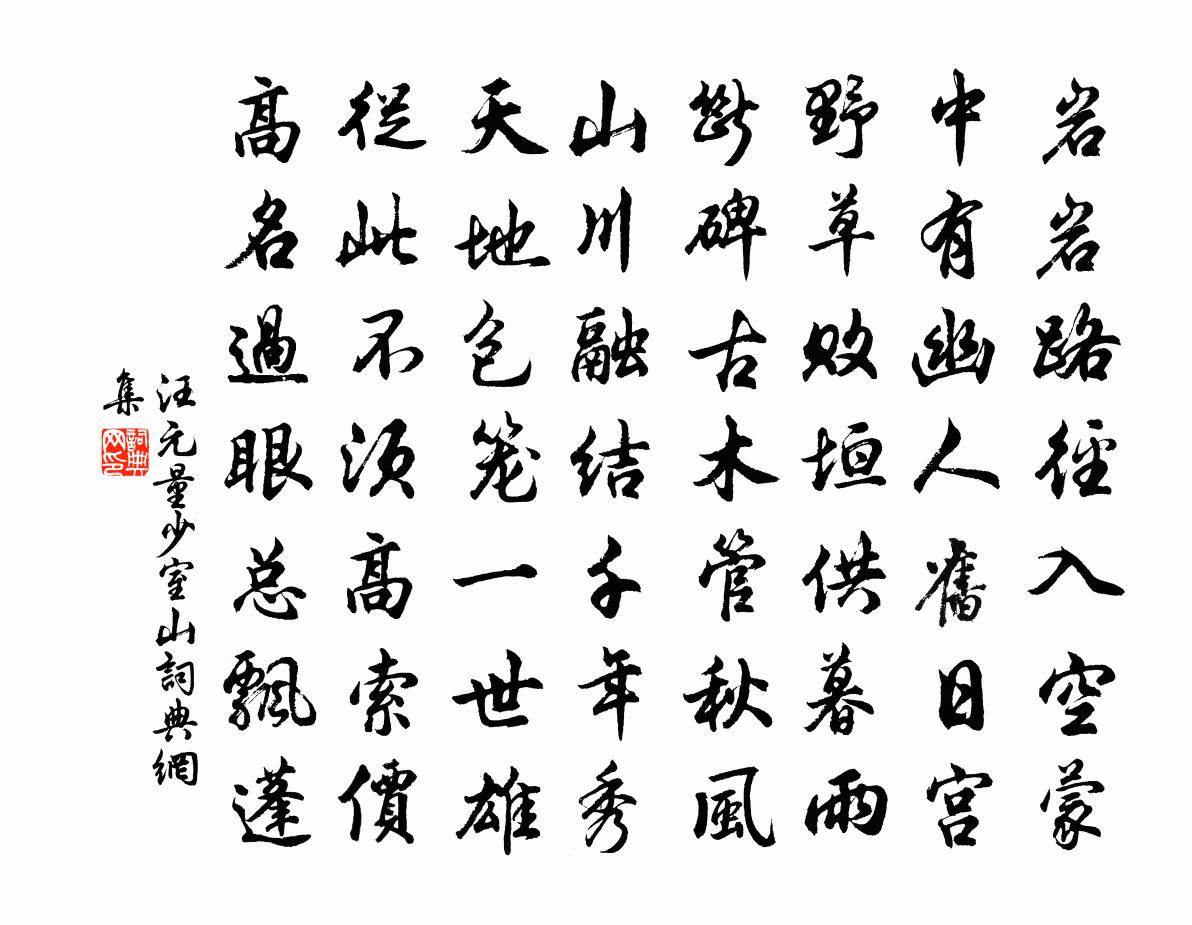 岩岩路徑入空蒙
中有幽人舊日宮
野草敗垣供暮雨
斷碑古木管秋風
山川融結千年秀
天地包籠一世雄
從此不須高索價
高名過眼總飄蓬
汪元量少室山詞典網
集
詞典网印